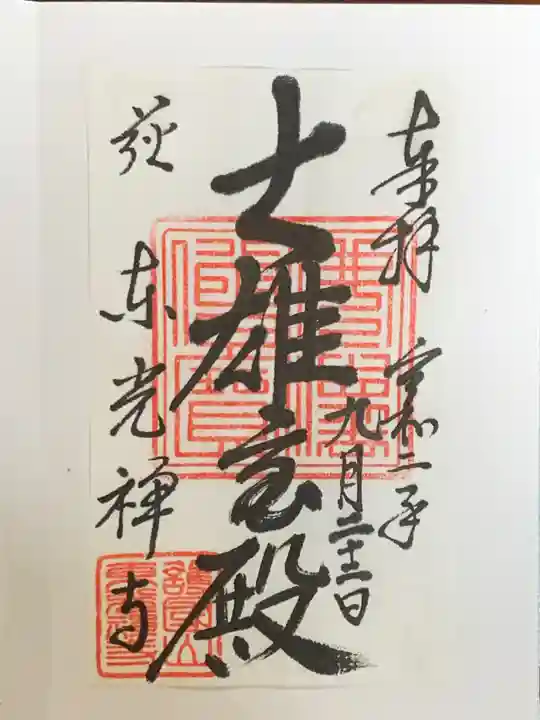 奉拝 令和二年
九月二十二日
大雄宝殿
萩 東光禅寺